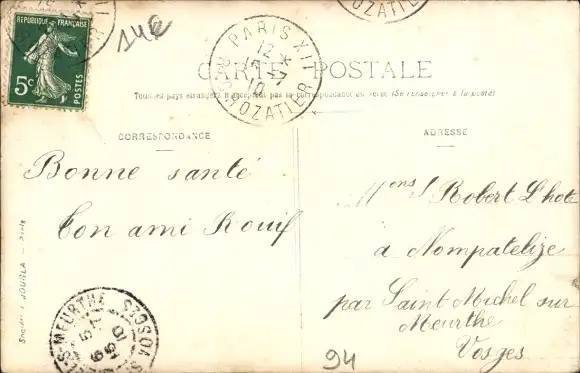 RÉPUBLIQUE FRANÇAISE
5c
POSTES
14€
PARIS XII
12 *
10
R. CROZATIER
CROZATIER
CARTE POSTALE
Tous les pays étrangers n'acceptent pas la correspondance au verso (Se renseigner à la poste)
CORRESPONDANCE
ADRESSE
Bonne santé
Ton ami Rouif
Mons r Robert Lhote
a Nompatelize
par Saint Michel sur
Meurthe
Vosges
MEURTHE
VOSGES
94